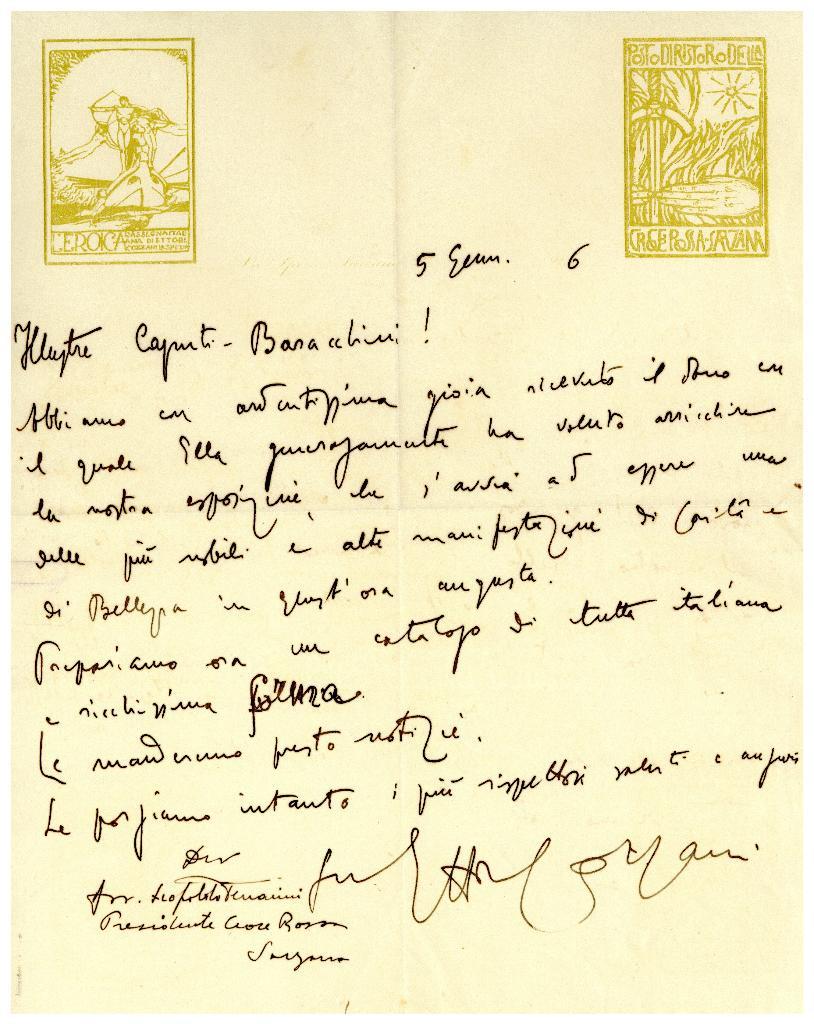 L'EROICA RASSEGNA ITALIANA DI ETTORE COZZANI LA SPEZIA
POSTO DI RISTORO DELLA
CROCE ROSSA-SARZANA
5 Genn. 6
Illustre Caputi-Baracchini!
Abbiamo con ardentissima gioia ricevuto il dono con
il quale Ella generosamente ha voluto arricchire
la nostra esposizione, che s'avvia ad essere una
delle più nobili e alte manifestazioni di Carità e
di Bellezza in quest'ora angusta.
Prepariamo ora un catalogo di tutta italiana
e ricchissima
Le manderemo presto notizie.
Le porgiamo intanto i più rispettosi saluti e auguri
Dev
Avv. Leopoldo Ferrarini
Ettore Cozzani
Presidente Croce Rossa
Sarzana